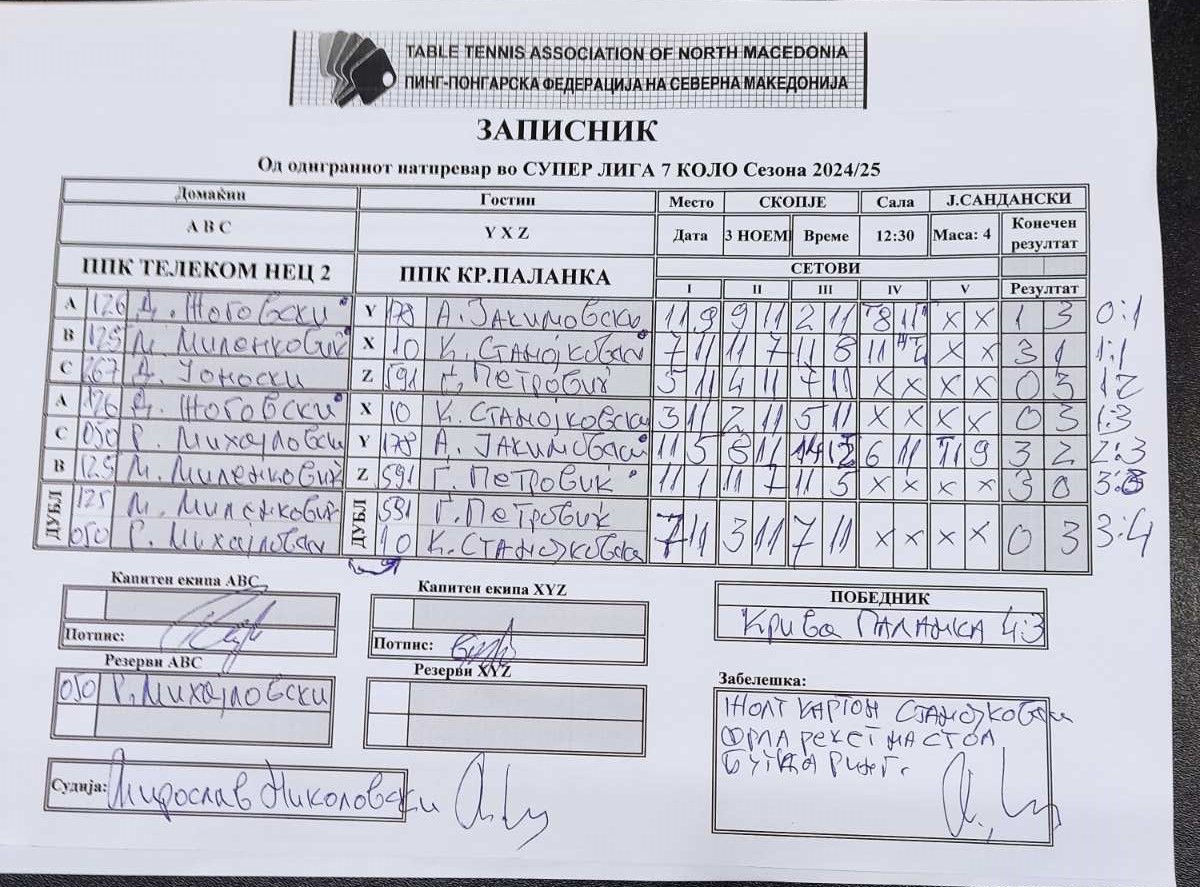 TABLE TENNIS ASSOCIATION OF NORTH MACEDONIA
ПИНГ-ПОНГАРСКА ФЕДЕРАЦИЈА НА СЕВЕРНА МАКЕДОНИЈА
ЗАПИСНИК
Од одиграниот натпревар во СУПЕР ЛИГА 7 КОЛО Сезона 2024/25
Домаќин Гостин Место СКОПЈЕ Сала Ј.САНДАНСКИ
A B C Y X Z Дата 3 НОЕМ Време 12:30 Маса: 4 Конечен резултат
ППК ТЕЛЕКОМ НЕЦ 2 ППК КР.ПАЛАНКА СЕТОВИ
I II III IV V Резултат
A 126 Д. Ноговски Y 178 А. Јакимовски 11 9 9 11 2 11 8 11 x x 1 3 0:1
B 125 М. Миленковиќ X 10 К. Станојковски 7 11 11 7 11 8 11 x x 3 1 1:1
C 267 Д. Z 591 Г. Петровиќ 5 11 4 11 7 11 x x x x 0 3 1:2
A 126 Д. Ноговски X 10 К. Станојковски 3 11 2 11 5 11 x x x x 0 3 1:3
C 050 Р. Михајловски Y 178 А. Јакимовски 11 5 8 11 14 12 6 11 11 9 3 2 2:3
B 125 М. Миленковиќ Z 591 Г. Петровиќ 11 1 11 7 11 5 x x x x 3 0 3:3
ДУБЛ 125 М. Миленковиќ ДУБЛ 591 Г. Петровиќ 7 11 3 11 7 11 x x x x 0 3 3:4
050 Р. Михајловски 10 К. Станојковски
Капитен екипа ABC Капитен екипа XYZ ПОБЕДНИК
Крива Паланка 4:3
Потпис: Потпис:
Резерви ABC Резерви XYZ Забелешка:
050 Р. Михајловски
Жолт картон Станојковски
фрла рекет на стол
бутка ринг.
Судија: Мирослав Николовски